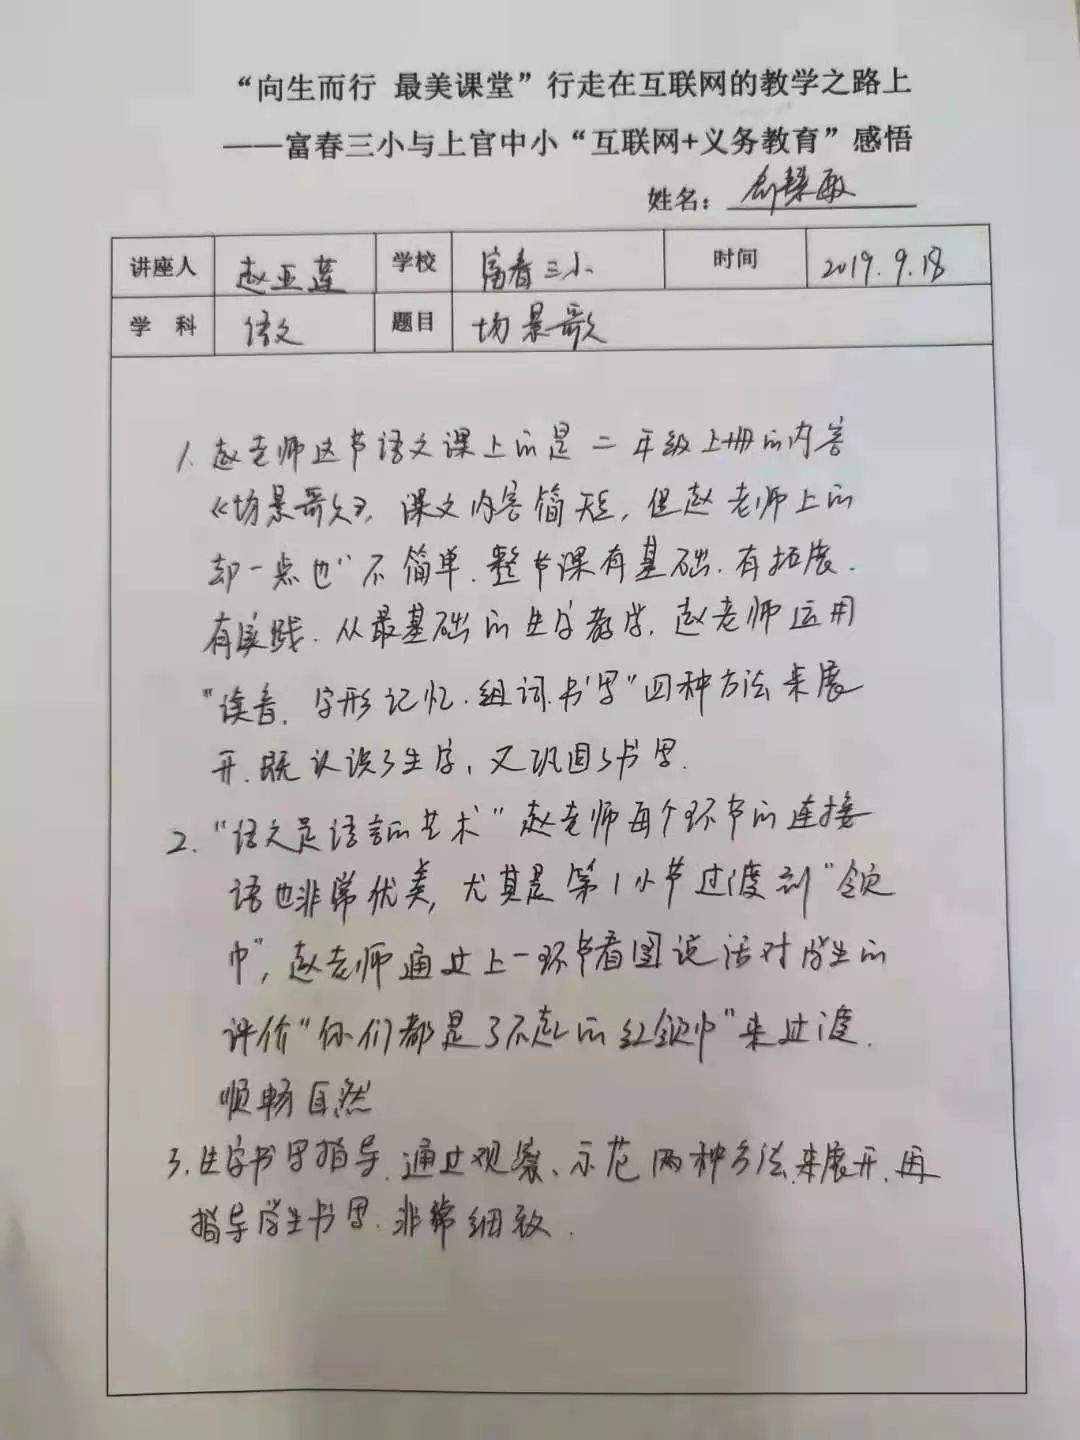 “向生而行 最美课堂”行走在互联网的教学之路上
——富春三小与上官中小“互联网+义务教育”感悟
姓名：
讲座人 赵亚莲 学校 富春三小 时间 2019.9.18
学 科 语文 题目 场景歌
1. 赵老师这节语文课上的是二年级上册的内容
《场景歌》，课文内容简短，但赵老师上的
却一点也“不简单.整节课有基础.有拓展.
有实践.从最基础的生字教学，赵老师运用
“读音.字形记忆.组词.书写”四种方法来展
开.既认识了生字，又巩固了书写.
2. “语文是语言的艺术”赵老师每个环节的连接
语也非常优美，尤其是第1小节过渡到“领
巾”，赵老师通过上一环节看图说话对学生的
评价“你们都是了不起的红领巾”来过渡.
顺畅自然
3. 生字书写指导.通过观察、示范两种方法来展开.再
指导学生书写.非常细致.